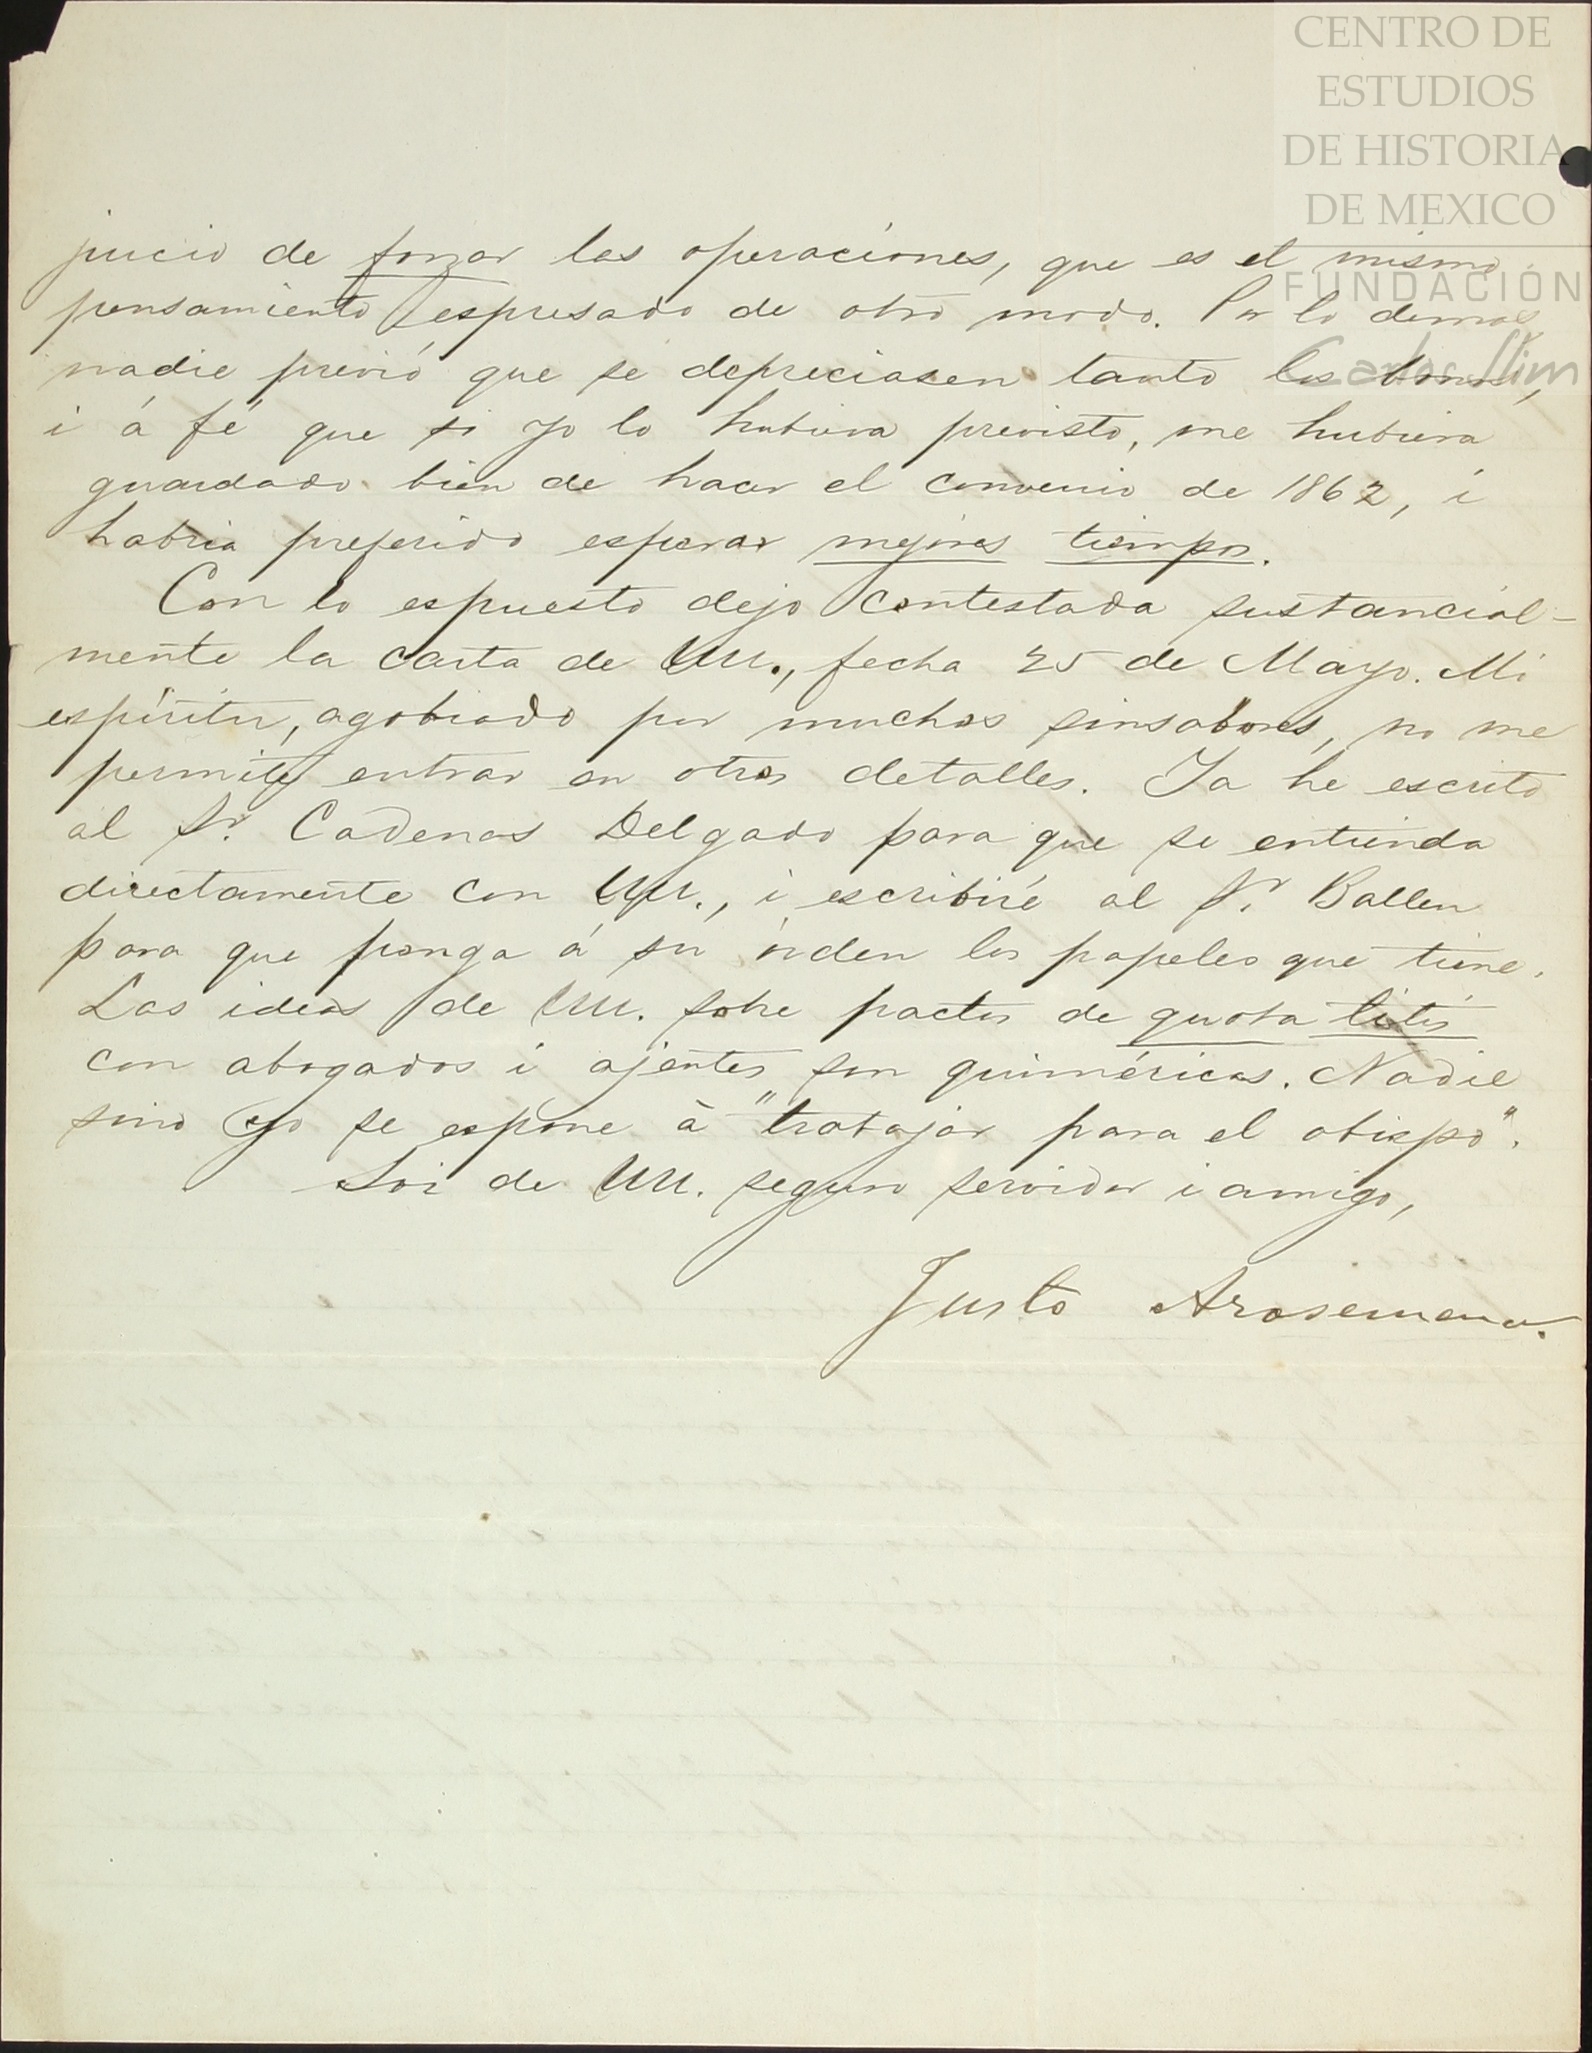 CENTRO DE
ESTUDIOS
DE HISTORIA
DE MEXICO
FUNDACIÓN
Carlos Slim
juicio de forzar las operaciones, que es el mismo
pensamiento espresado de otro modo. Por lo demas
nadie previó que se depreciasen tanto los bonos,
i á fé que si yo lo hubiera previsto, me hubiera
guardado bien de hacer el convenio de 1862, i
habria preferido esperar mejores tiempos.
Con lo espuesto dejo contestada sustancial-
mente la carta de UU., fecha 25 de Mayo. Mi
espíritu, agobiado por muchos sinsabores, no me
permite entrar en otros detalles. Ya he escrito
al Sr. Cadenas Delgado para que se entienda
directamente con UU., i escribiré al Sr. Ballen
para que ponga á su órden los papeles que tiene.
Las ideas de UU. sobre pactos de quota litis
con abogados i ajentes son quiméricas. Nadie
sino yo se espone á "trabajar para el obispo".
Soi de UU. seguro servidor i amigo,
Justo Arosemena.